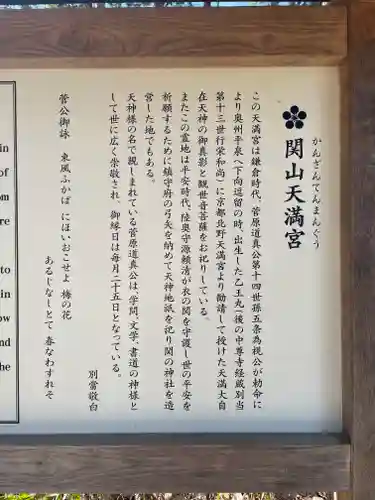 かんざんてんまんぐう
関山天満宮
この天満宮は鎌倉時代、菅原道真公第十四世孫五条為視公が勅命に
より奥州平泉へ下向逗留の時、出生した乙王丸（後の中尊寺経蔵別当
第十三世行栄和尚）に京都北野天満宮より勧請して授けた天満大自
在天神の御真影と観世音菩薩をお祀りしている。
またこの霊地は平安時代、陸奥守源頼清が衣の関を守護し世の平安を
祈願するために鎮守府の弓矢を納めて天神地祇を祀り関の神社を造
営した地でもある。
天神様の名で親しまれている菅原道真公は、学問、文学、書道の神様と
して世に広く崇敬され、御縁日は毎月二十五日となっている。
別當敬白
菅公御詠 東風ふかば にほいおこせよ 梅の花
あるじなしとて 春なわすれそ
in
of
om
re
to
in
ow
nd
he